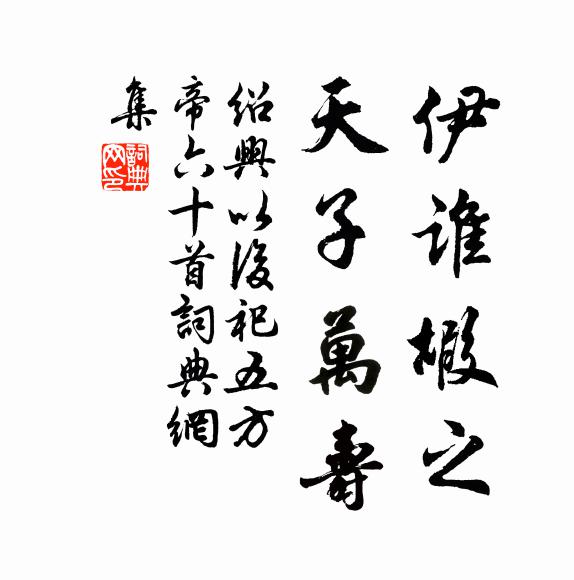 伊誰嘏之
天子萬壽
紹興以後祀五方
帝六十首詞典網
集
詞典
网印